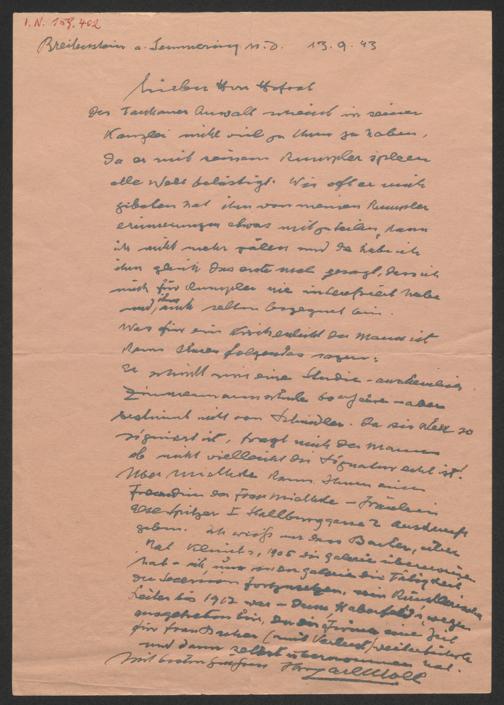 I.N. 159.402
Breitenstein a. Semmering N.D. 13.9.43
Lieber Herr Hofrat
Der Anwalt scheint in seiner
Kanzlei nicht viel zu thun zu haben,
da er mit seinem Rumpler spleen
alle Welt belästigt. Wie oft er mich
gebeten hat ihm von meinen Rumpler
erinnerungen etwas mitzuteilen, kann
ich nicht mehr zälen und da habe ich
ihm gleich das erste mal gesagt, dass ich
mich für Rumpler nie interessiert habe
und ihm auch selten begegnet bin.
Was für ein Kirchenlicht der Mann ist
kann Ihnen folgendes sagen:
Er schickt mir eine Studie - anscheinend
Zimmermannschule 60er Jare - aber
bestimmt nicht von Schindler. Da sie
signiert ist, fragt mich der Mann
ob nicht vielleicht die Signatur echt ist!
Über Miethke kann Ihnen eine
Freundin der Frau Miethke - Fräulein
Else Spitzer I Stallburggasse 2 auskunft
geben. Ich weiss nur dass Bacher, über
Rat Klimts, 1905 die galerie überwiesen
hat - ich, um in der galerie die Tätigkeit
der Secession fortzusetzen, ihr Künstlerischer
Leiter bis 1912 war - dann, Haberfelds, wegen
ausgetreten bin, die Firma eine Zeit
für Frau Bacher (mit Verlust) weiterführte
und dann selbst übernommen hat.
Mit besten grüssen Ihr Carl Moll